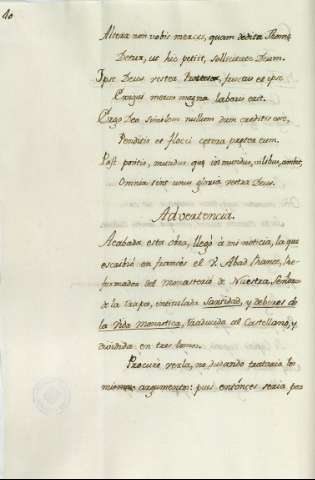 40
Altera non vobis merces, quam dedita Thomæ
Detur, ut hic petiit, sollicitate Deum.
Ipse Deus vester, fuscus et ipse
Exiguí merces magna laboris erit.
Ergo Deo similem nullum dum creditis esse,
Penditis et flocci cetera præter eum.
Post positis, mundus, quæ inmundus, vilibus, ambit,
Omnia sint unus gloria vestra Deus.
Advertencia.
Acabada esta obra, llegó á mi noticia, la que
escribió en francés el V. Abad Rancé, Re-
formador del Monasterio de Nuestra Señora
de la Trapa, intitulada Santidad, y deberes de
la Vida Monastica, traducida al Castellano, y
dividida en tres tomos.
Procuré verla, no dudando trataria los
mismos argumentos: pues entónces seria por